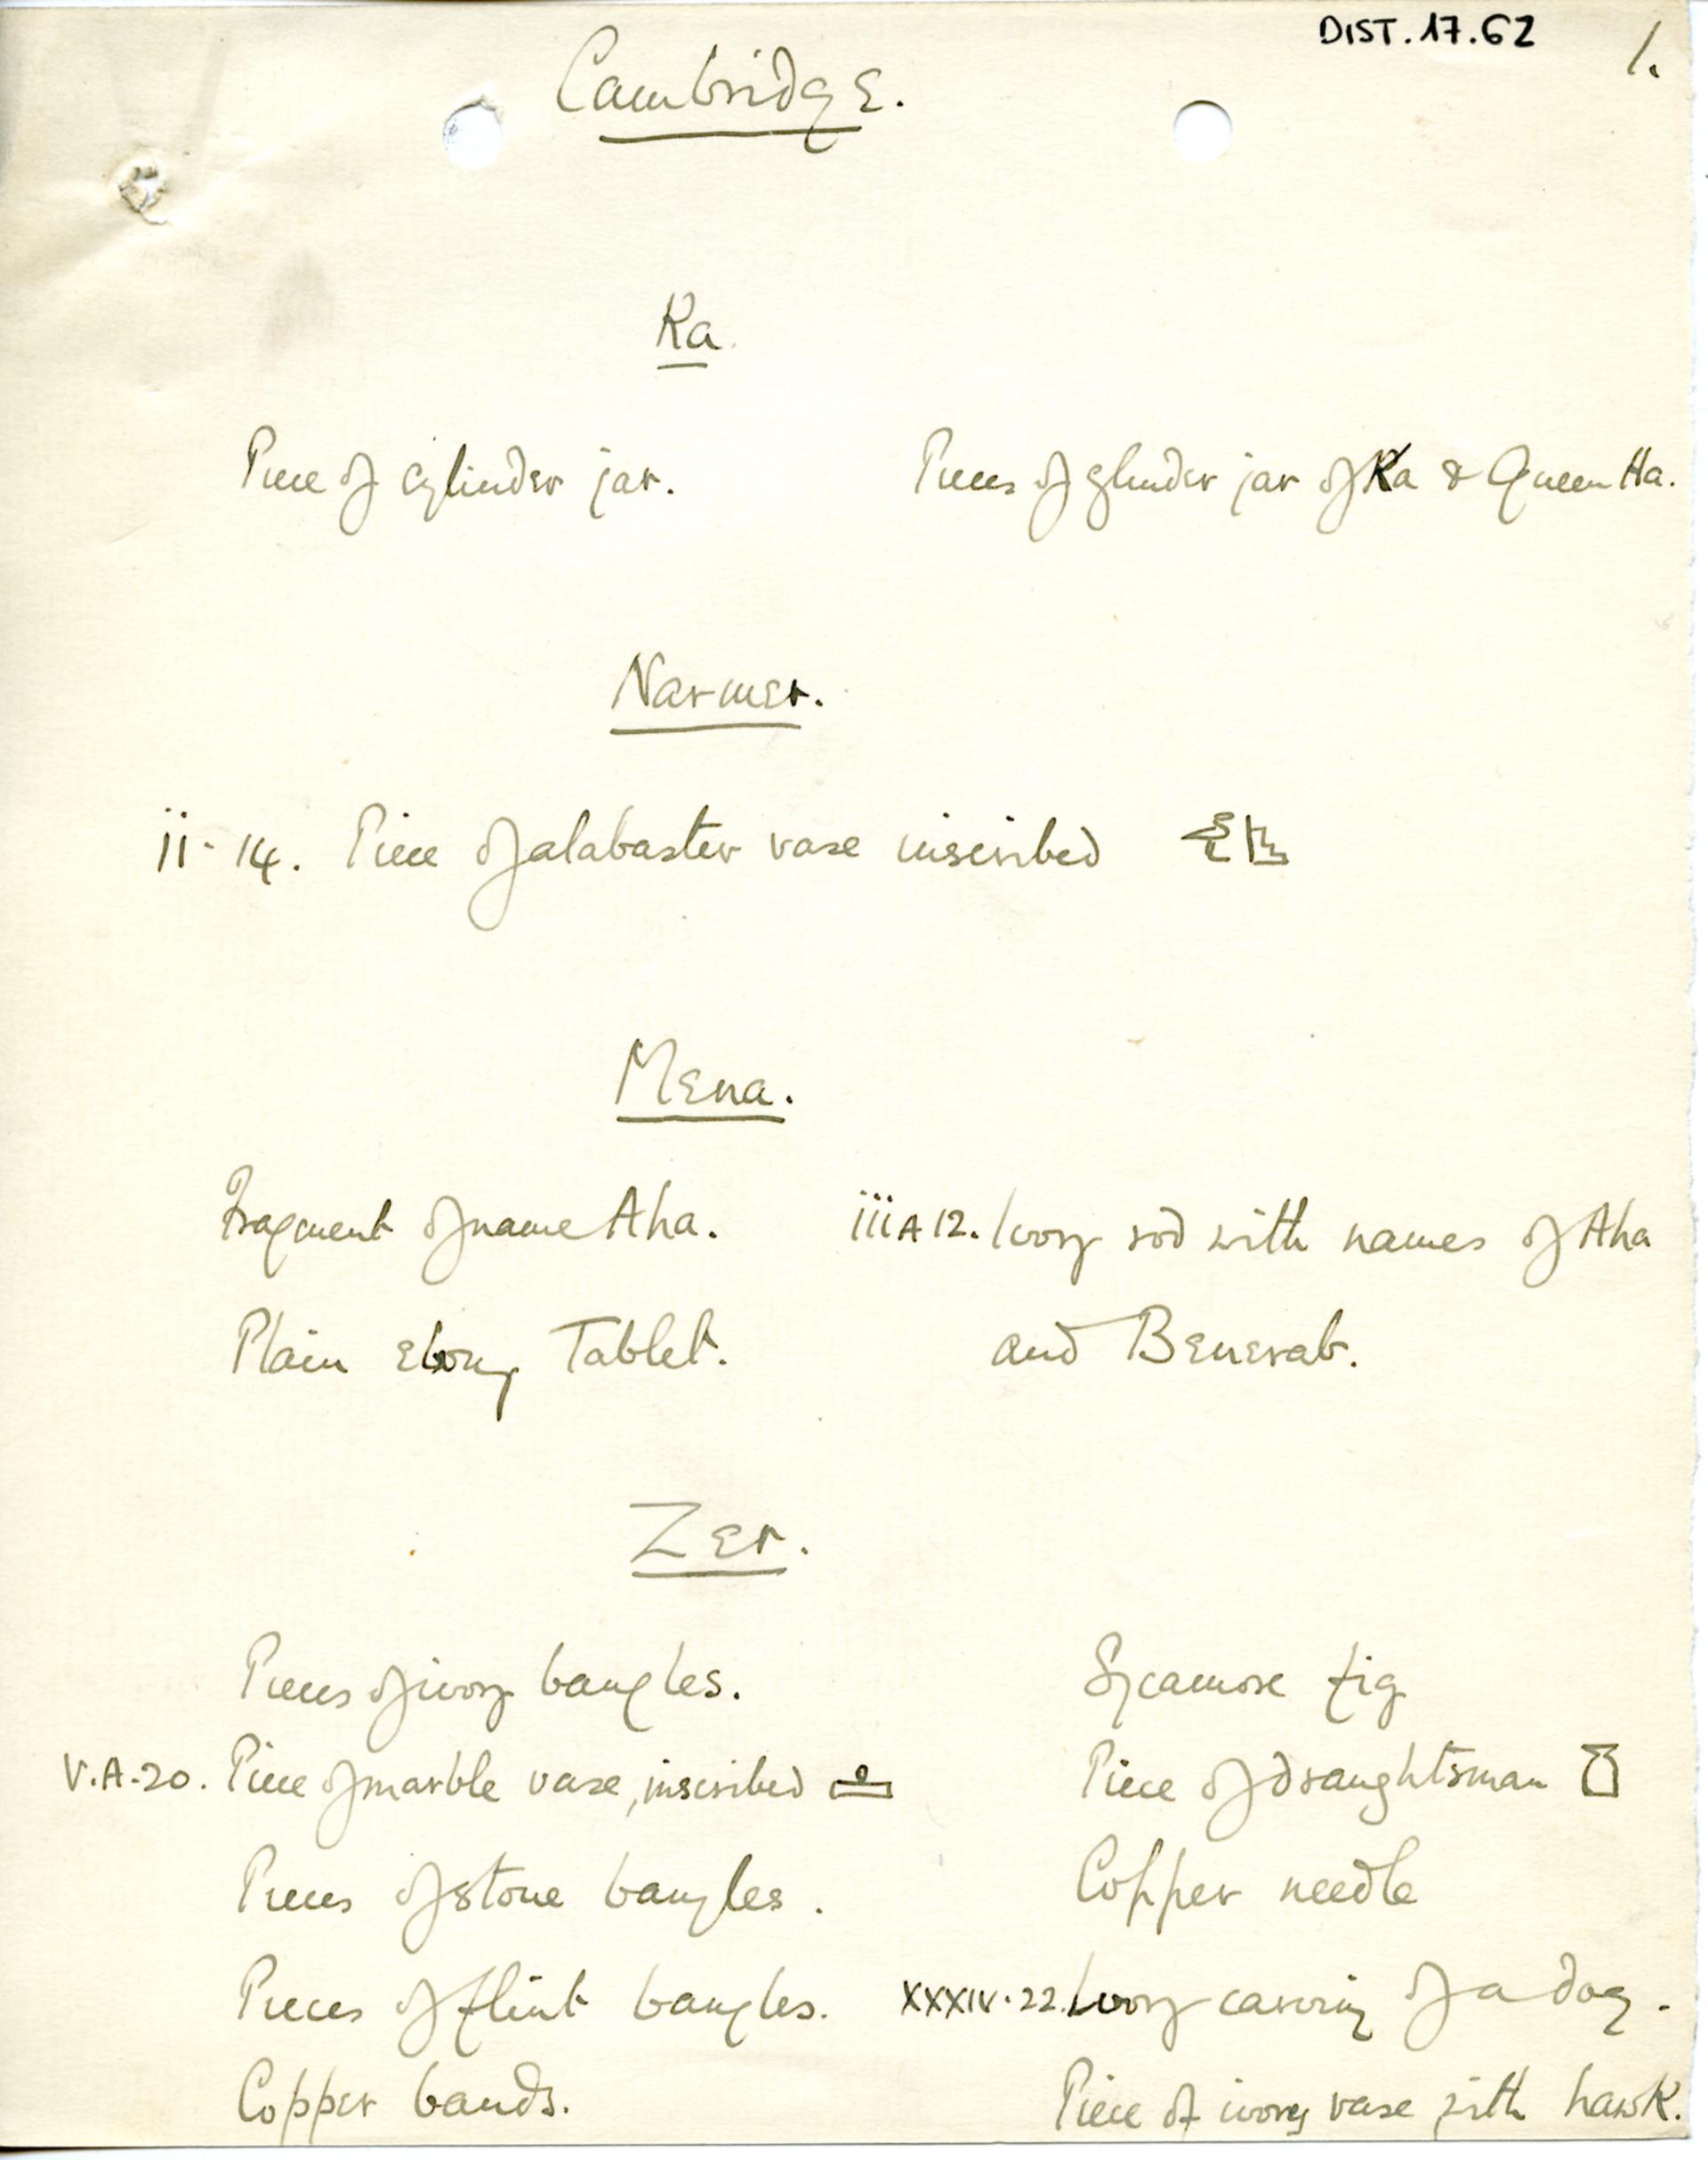 DIST.17.62
1.
Cambridge.
Ka.
Piece of cylinder jar.
Pieces of cylinder jar of Ka & Queen Ha.
Narmer.
ii-14. Piece of alabaster vase inscribed
Mena.
Fragment of name Aha.
iiiA12. Ivory rod with names of Aha
Plain ebony Tablet.
and Benerab.
Zer.
Pieces of ivory bangles.
Sycamore fig
V.A.20. Piece of marble vase, inscribed
Piece of draughtsman
Pieces of stone bangles.
Copper needle
Pieces of flint bangles.
XXXIV.22. Ivory carving of a dog.
Copper bands.
Piece of ivory vase with hawk.